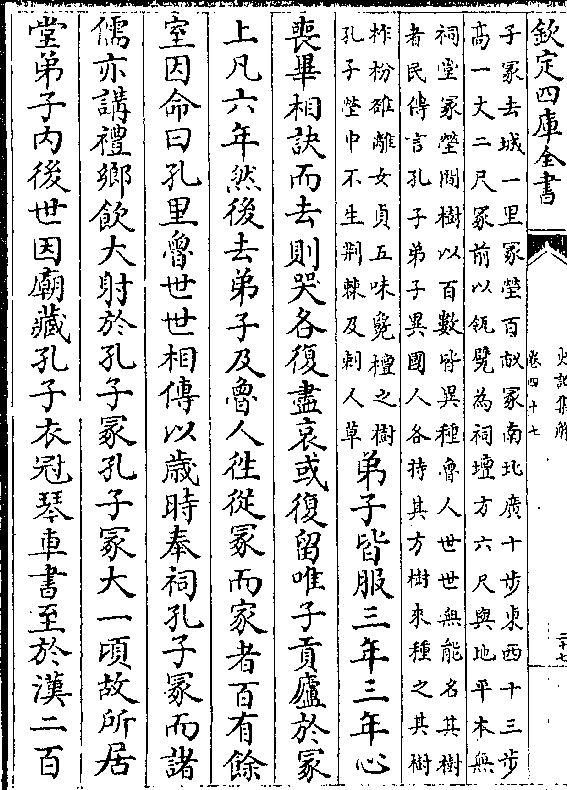 欽定四庫全書
史記集解
卷四十七
二十七
子冢去城一里冢塋百畝冢南北廣十步東西十三步
高一丈二尺冢前以瓴甓為祠壇方六尺與地平本無
祠堂冢塋間樹以百數皆異種魯人世世無能名其樹
者民傳言孔子弟子異國人各持其方樹來種之其樹
柞枌雒離女貞五味毚檀之樹
孔子塋中不生荆棘及刺人草
弟子皆服三年三年心
喪畢相訣而去則哭各復盡哀或復留唯子貢廬於冢
上凡六年然後去弟子及魯人往從冢而家者百有餘
室因命曰孔里魯世世相傳以歲時奉祠孔子冢而諸
儒亦講禮鄉飲大射於孔子冢孔子冢大一頃故所居
堂弟子内後世因廟藏孔子衣冠琴車書至於漢二百